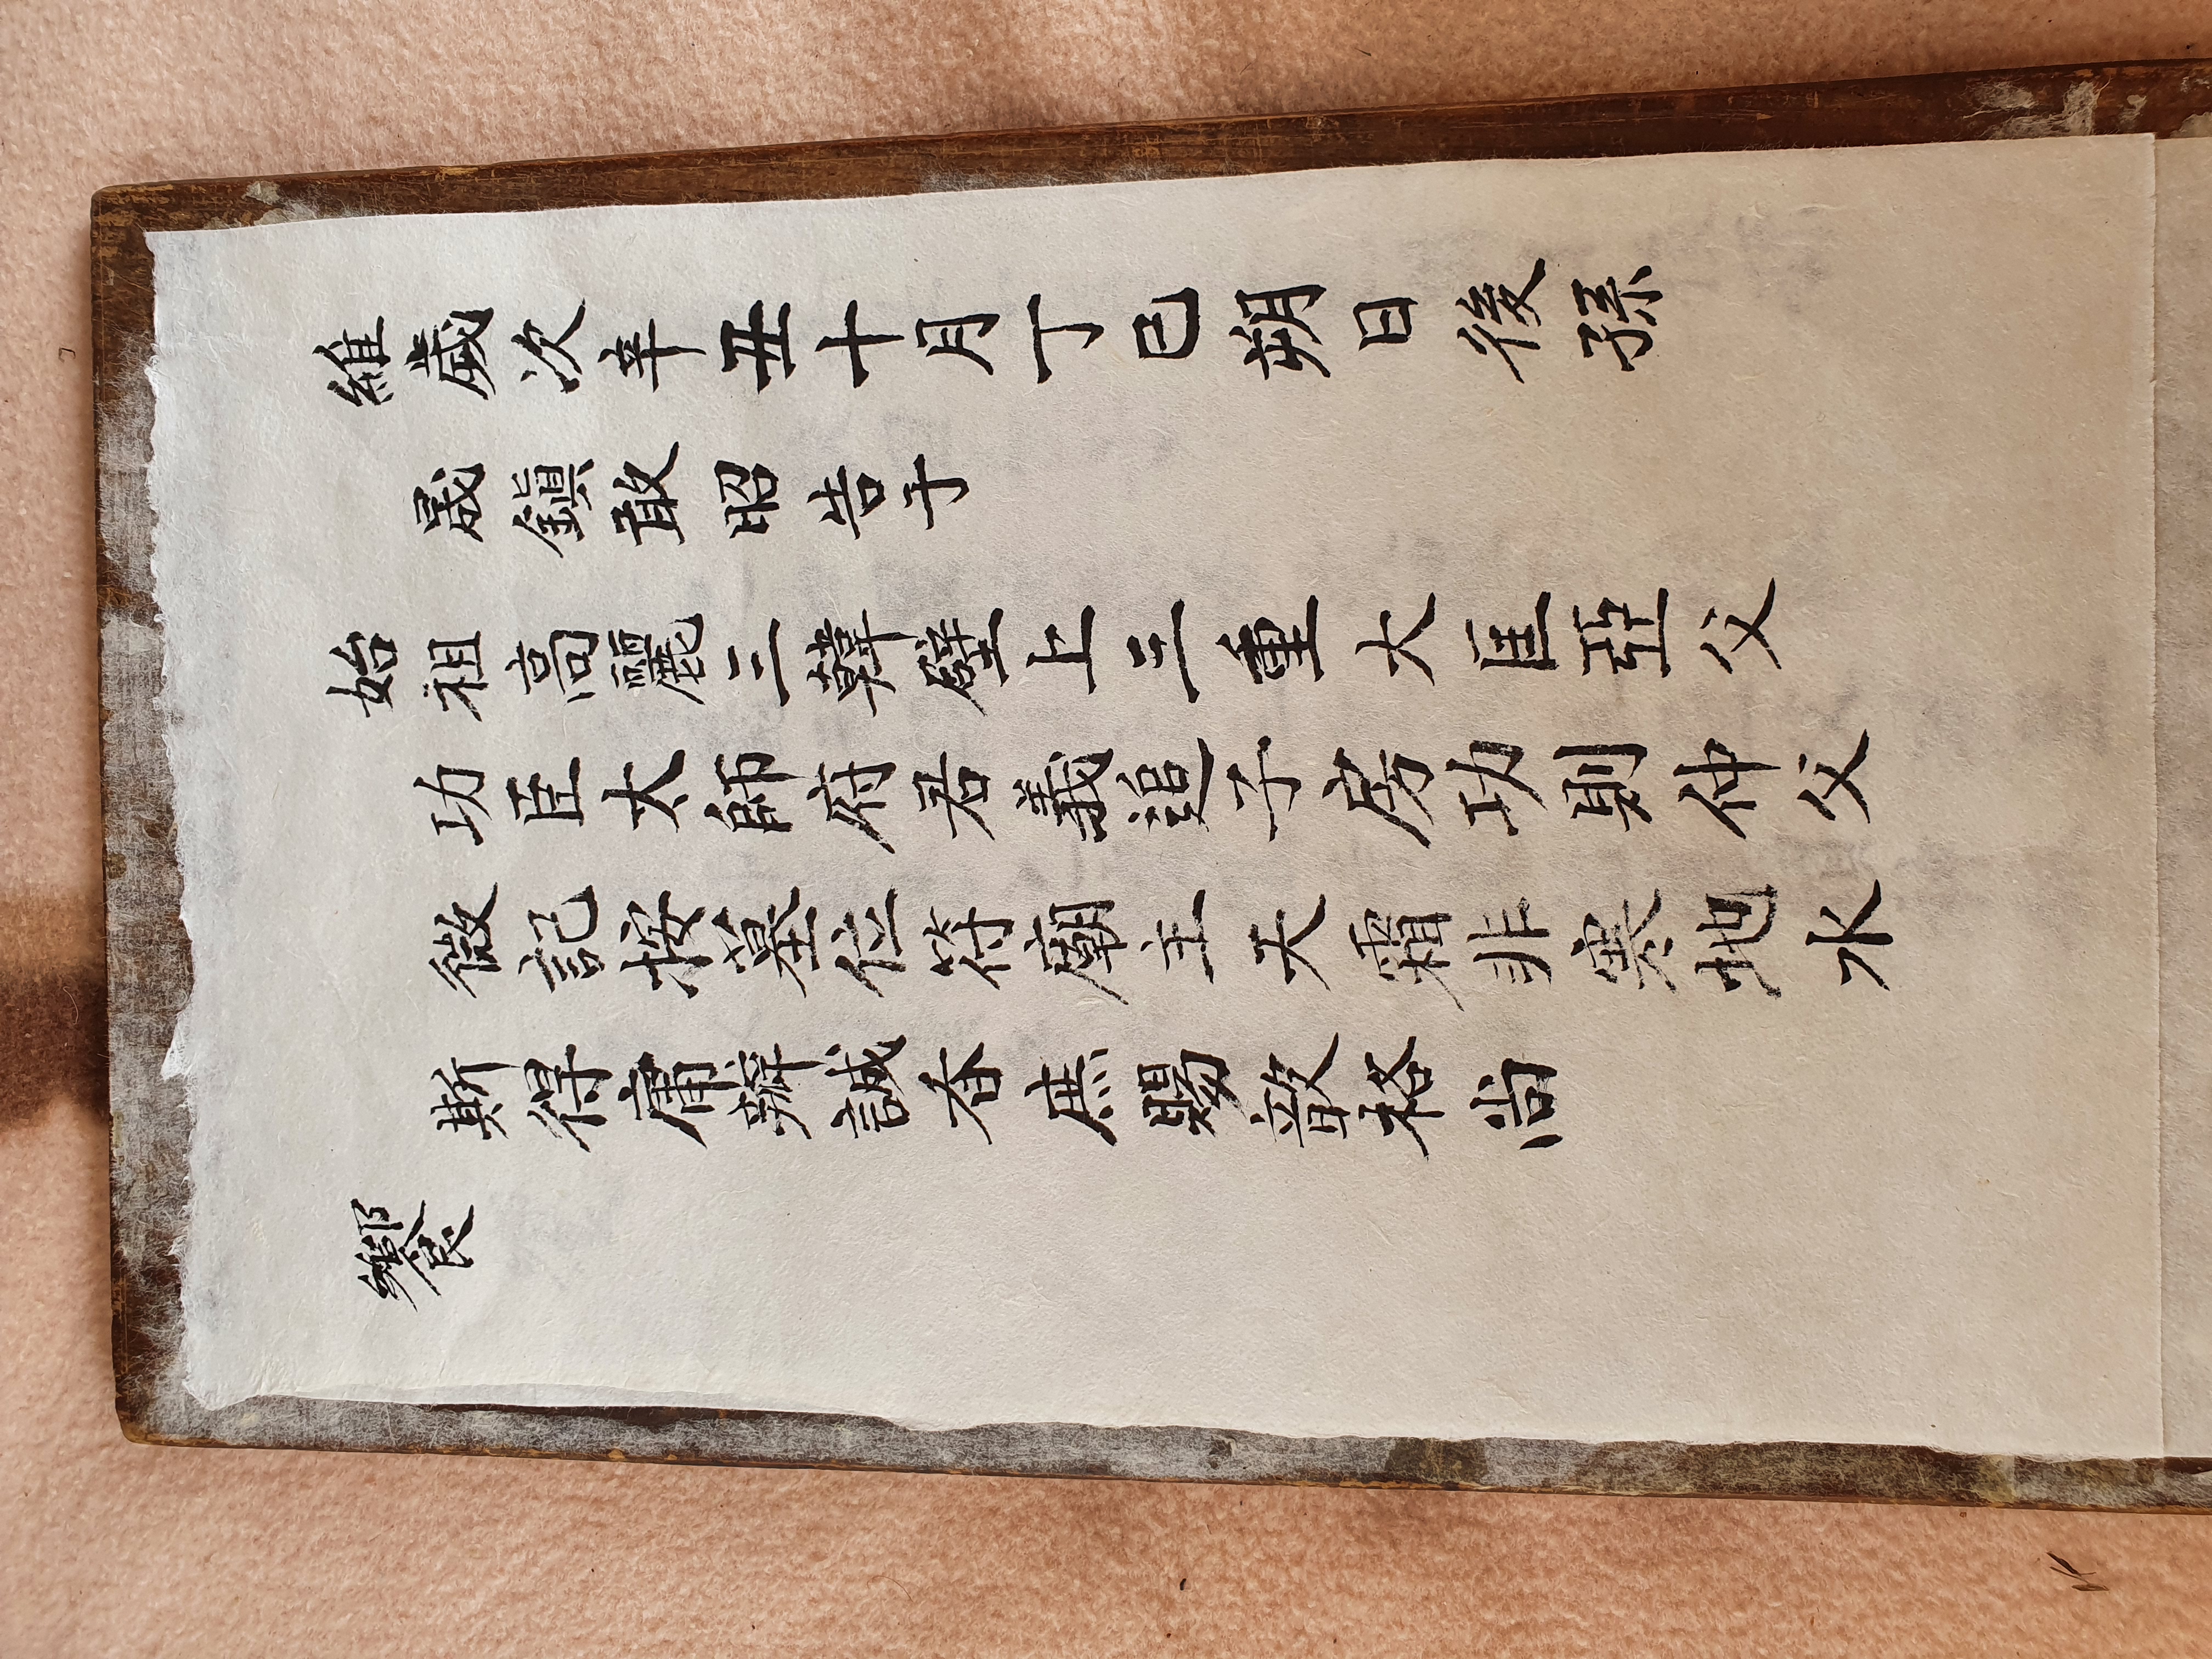 維歲次辛丑十月丁巳朔日後孫
晟鎭敢昭告于
始祖高麗三韓壁上三重大匡亞父
功臣太師府君義追子房功則仲父
徵記按墓位符廟主天霜非寒地水
斯得庸辦誠香庶賜歆格尙
饗